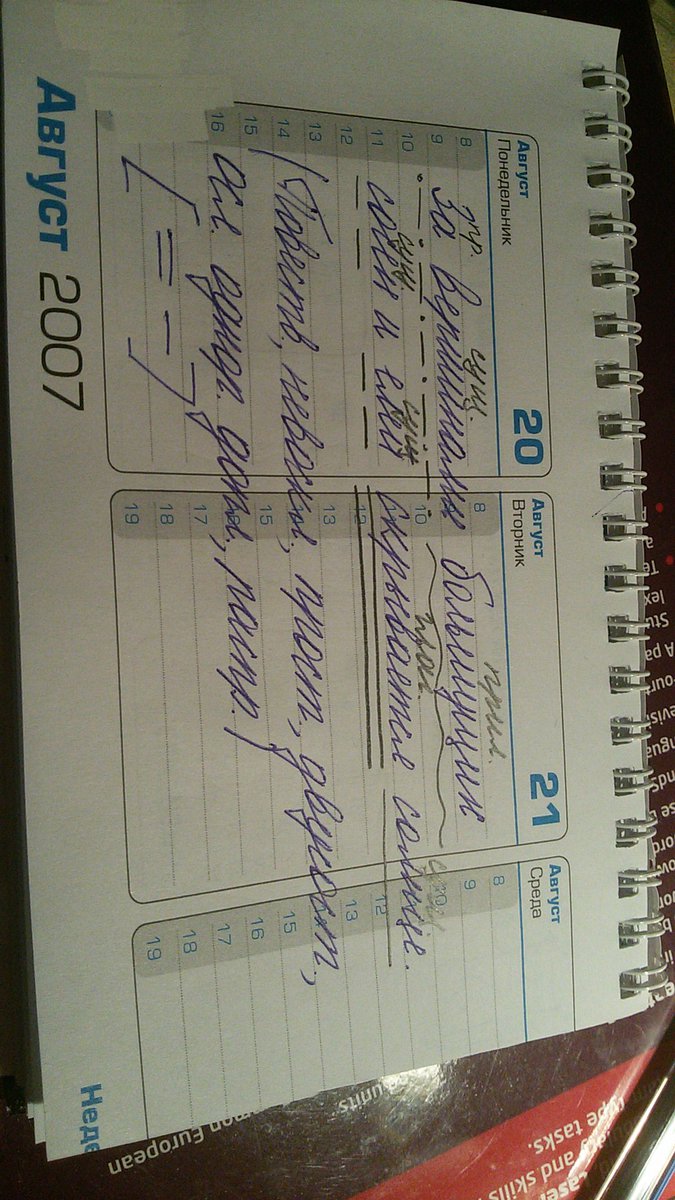 Август 20
Понедельник
Август 21
Вторник
Август
Среда
пр. сущ. прил.
За вершинами большущих
сущ. сущ. глаг. сущ.
сосен и елей скрывается солнце.
(Повеств., невоскл., прост., двусост.,
осл. однор. доп., распр.)
[ = – ]
8 8 8
9 9
10 10 10
11
12 12 12
13 13 13
14
15 15 15
16 16
17 17
18 18
19 19
Август 2007
Неде
European
units
and skills
type tasks.